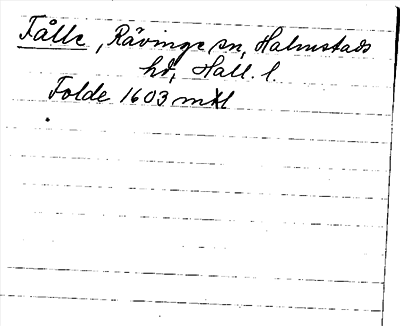 Fålle, Rävinge sn, Halmstads
hd, Hall. l.
Folde 1603 mtl